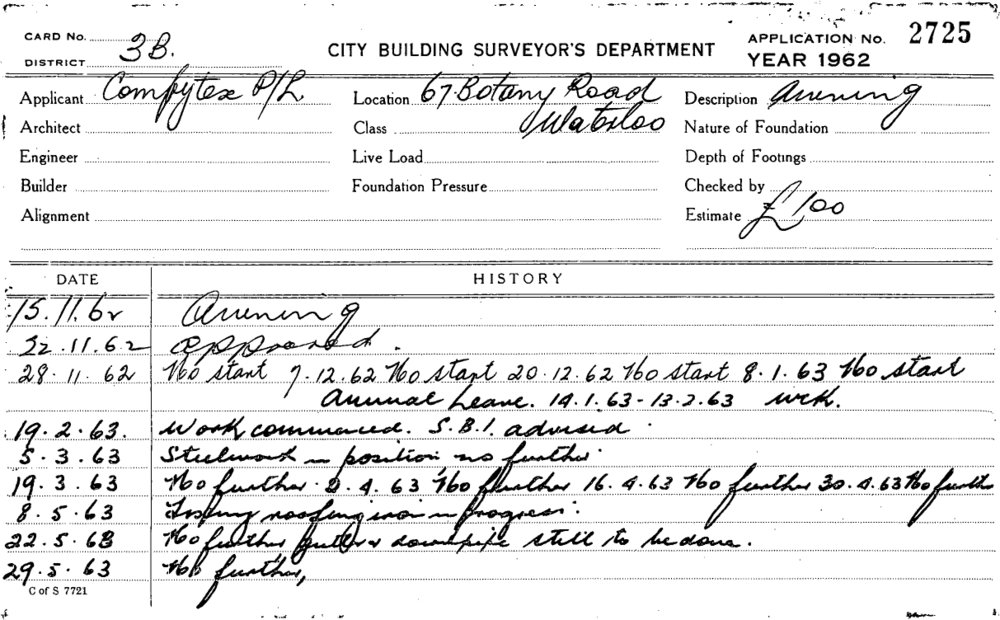 CARD No.
DISTRICT 3B.
CITY BUILDING SURVEYOR'S DEPARTMENT
APPLICATION No. 2725
YEAR 1962
Applicant Compytex P/L
Location 67 Botany Road
Waterloo
Description Awning
Architect
Class
Nature of Foundation
Engineer
Live Load
Depth of Footings
Builder
Foundation Pressure
Checked by
Alignment
Estimate £100
DATE HISTORY
15.11.62 Awning
22.11.62 approved.
28.11.62 No start 7.12.62 No start 20.12.62 No start 8.1.63 No start
Annual Leave. 14.1.63-13.2.63 WCK.
19.2.63. Work commenced. S.B.I. advised.
5.3.63 Steelwork in position no further.
19.3.63 No further. 2.4.63 No further 16.4.63 No further 30.4.63 No further
8.5.63 roofing iron in progress.
22.5.63 No further gutter & downpipe still to be done.
29.5.63 No further,
C of S 7721